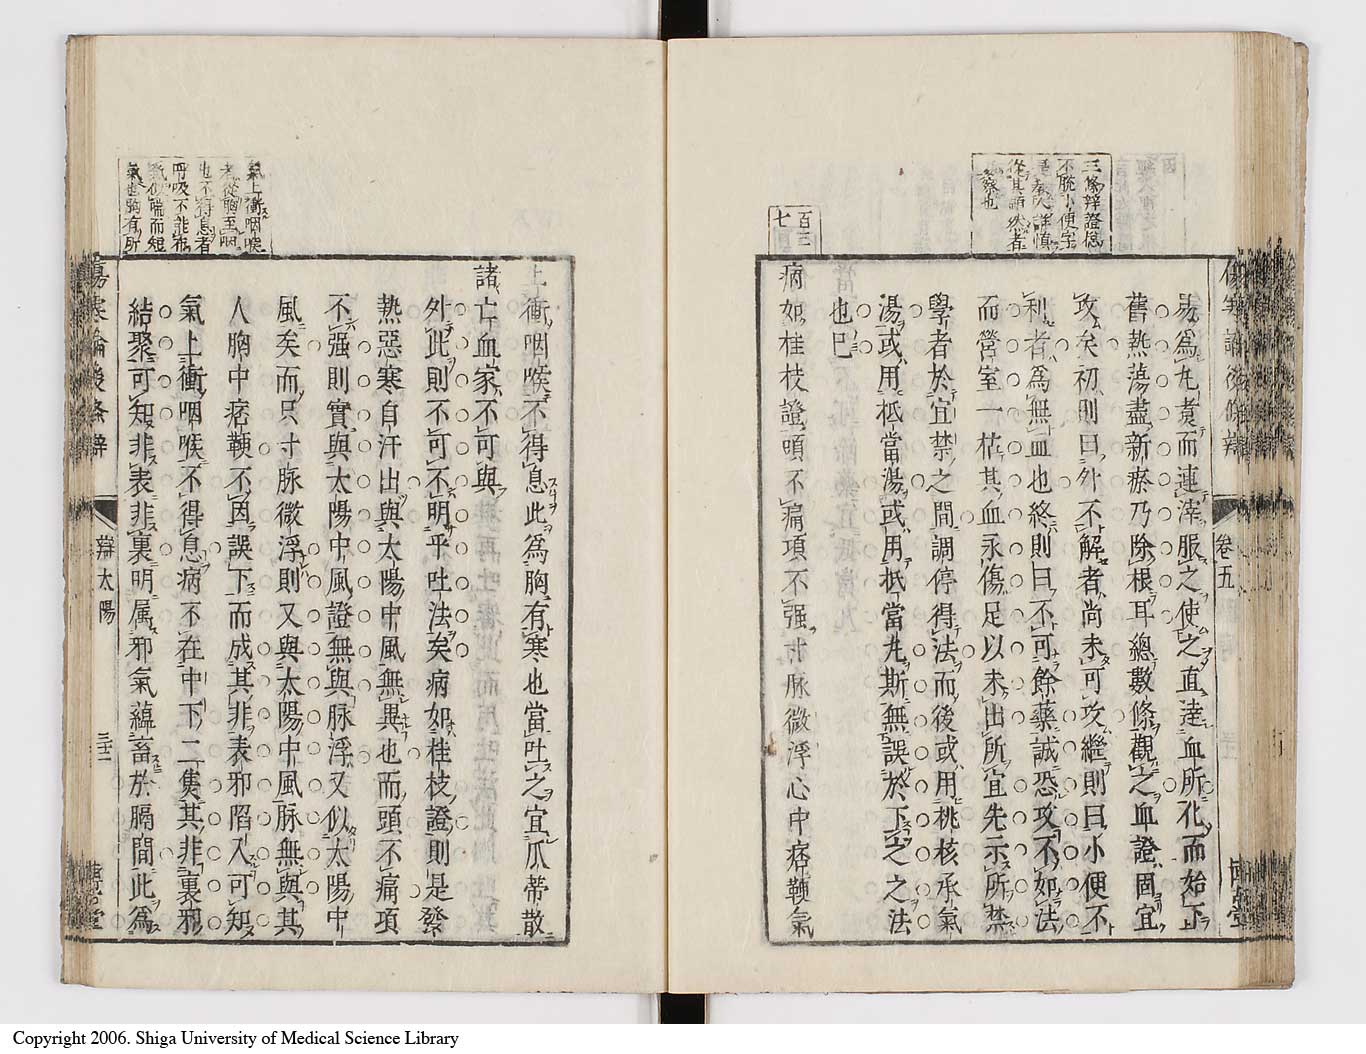 三條辨證總
不脫小便字
從其詔然者
察也
傷寒論後條辨
卷五
易爲丸煑而連滓服之使之直達血所化而始下
舊熱蕩盡新瘀乃除根耳總數條觀之血證固宜
攻矣初則曰外不解者尚未可攻繼則曰小便不
利者爲無血也終則曰不可餘藥誠恐攻不如法
而營室一枯其血永傷足以未出所宜先示所禁
學者於宜禁之間調停得法而後或用桃核承氣
湯或用抵當湯或用抵當丸斯無誤於下之之法
也已
百三
七
病如桂枝證頭不痛項不强寸脉微浮心中痞鞕氣
上衝咽喉不得息此爲胸有寒也當吐之宜瓜蒂散
諸亡血家不可與
外此則不可不明乎吐法矣病如桂枝證則是發
熱惡寒自汗出與太陽中風無異也而頭不痛項
不强則實與太陽中風證無與脉浮又似太陽中
風矣而只寸脉微浮則又與太陽中風脉無與其
人胸中痞鞕不因誤下而成其非表邪陷入可知
氣上衝咽喉不得息病不在中下二焦其非裏邪
結聚可知非表非裏明属邪氣蘊畜於膈間此爲
氣上衝咽喉
者從胸至咽
也不得息者
呼吸不非布
氣似喘而短
氣也胸有所
傷寒論後條辨
辯太陽
三十二